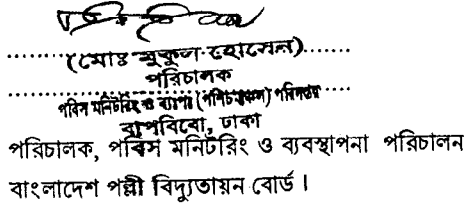 (মোঃ মুকুল হোসেন)
পরিচালক
পবিস মনিটরিং ও ব্যব্যঃ পরিচালন পরিদপ্তর
বাপবিবো, ঢাকা
পরিচালক, পবিস মনিটরিং ও ব্যবস্থাপনা পরিচালন
বাংলাদেশ পল্লী বিদ্যুতায়ন বোর্ড।